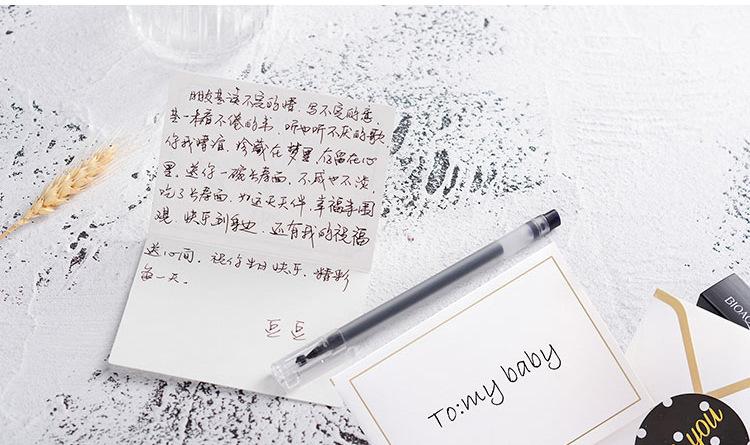 朋友是读不完的情,写不完的意,
是一本看不倦的书,听也听不厌的歌
你我情谊,珍藏在梦里,存留在心
里,送你一碗长寿面,不咸也不淡
吃了长寿面,如这天天伴,幸福牢围
观,快乐到身边,还有我的祝福
送心间,祝你生日快乐,精彩
每一天。
豆豆
To:my baby
BIOAQ
you